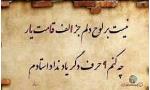 نیست بر لوح دلم جز الف قامت یار
چه کنم؟ حرف دگر یاد نداد استادم